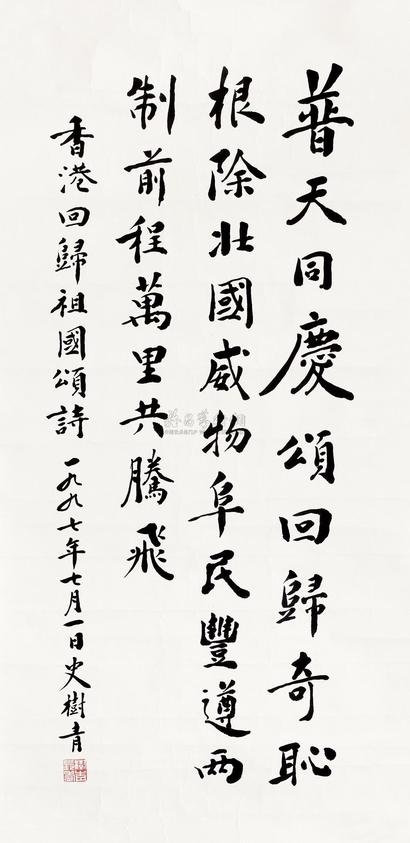 普天同慶頌回歸奇恥
根除壯國威物阜民豐遵兩
制前程萬里共騰飛
香港回歸祖國頌詩一九九七年七月一日史樹青